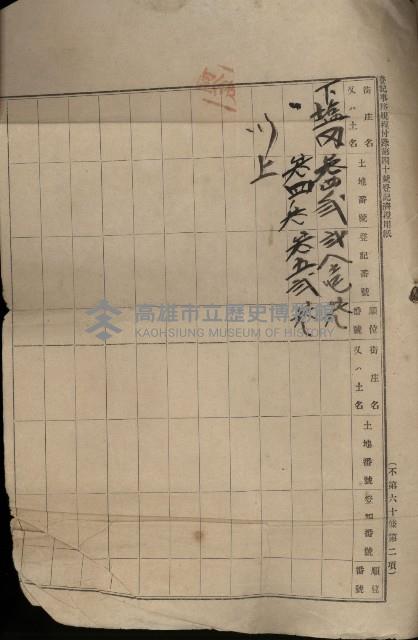 登記事務規程付錄第四十號登記濟證用紙
街庄名又ハ土名 土地番號 登記番號 順位番號 街庄名又ハ土名 土地番號 登記番號 順位番號
下塩田 參四貳 貳八壱
參四六 參五貳
以上
(不第六十條第二項)
高雄市立歷史博物館
KAOHSIUNG MUSEUM OF HISTORY